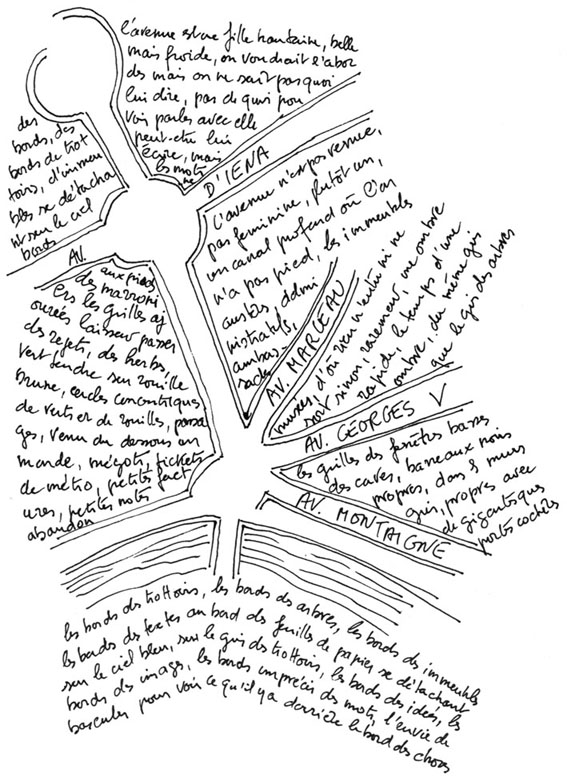 l'avenue est une fille hautaine, belle
mais froide, on voudrait l'abor
der mais on ne sait pas quoi
lui dire, pas de quoi pou
voir parler avec elle
peut-être lui
écrire, mais
les mots
ne
des
bords, des
bords de trot
toirs, d'immeu
bles se détacha
nt sur le ciel
bords
D'IENA
l'avenue n'est pas venue,
pas feminine, plutôt un,
un canal profond où l'on
n'a pas pied, les immeubles
austères admi
nistratifs,
ambas-
sades
AV.
aux pieds
des marroni
ers les grilles aj
ourées laissent passer
des rejets, des herbs,
vert tendre sur rouille
brune, cercles concentriques
de verts et de rouilles, passa
ges, venu du dessous du
monde, mégots, tickets
de métro, petites fact
ures, petites notes
abandon
AV. MARCEAU
muses, d'où rien n'entre ni ne
sort sinon, rarement, une ombre
rapide, le temps d'une
ombre, du même gris
que le gris des arbres
AV. GEORGES V
les grilles des fenêtres basses
des caves, barreaux noirs
propres, dans murs
gris, propres avec
de gigantesques
portes cochères
AV. MONTAIGNE
les bords des trottoirs, les bords des arbres, les bords des immeubles
les bords des textes au bord des feuilles de papier se détachant
sur le ciel bleu, sur le gris des trottoirs, les bords des idées, les
bords des images, les bords imprécis des mots, l'envie de
basculer pour voir ce qu'il y a derrière le bord des choses